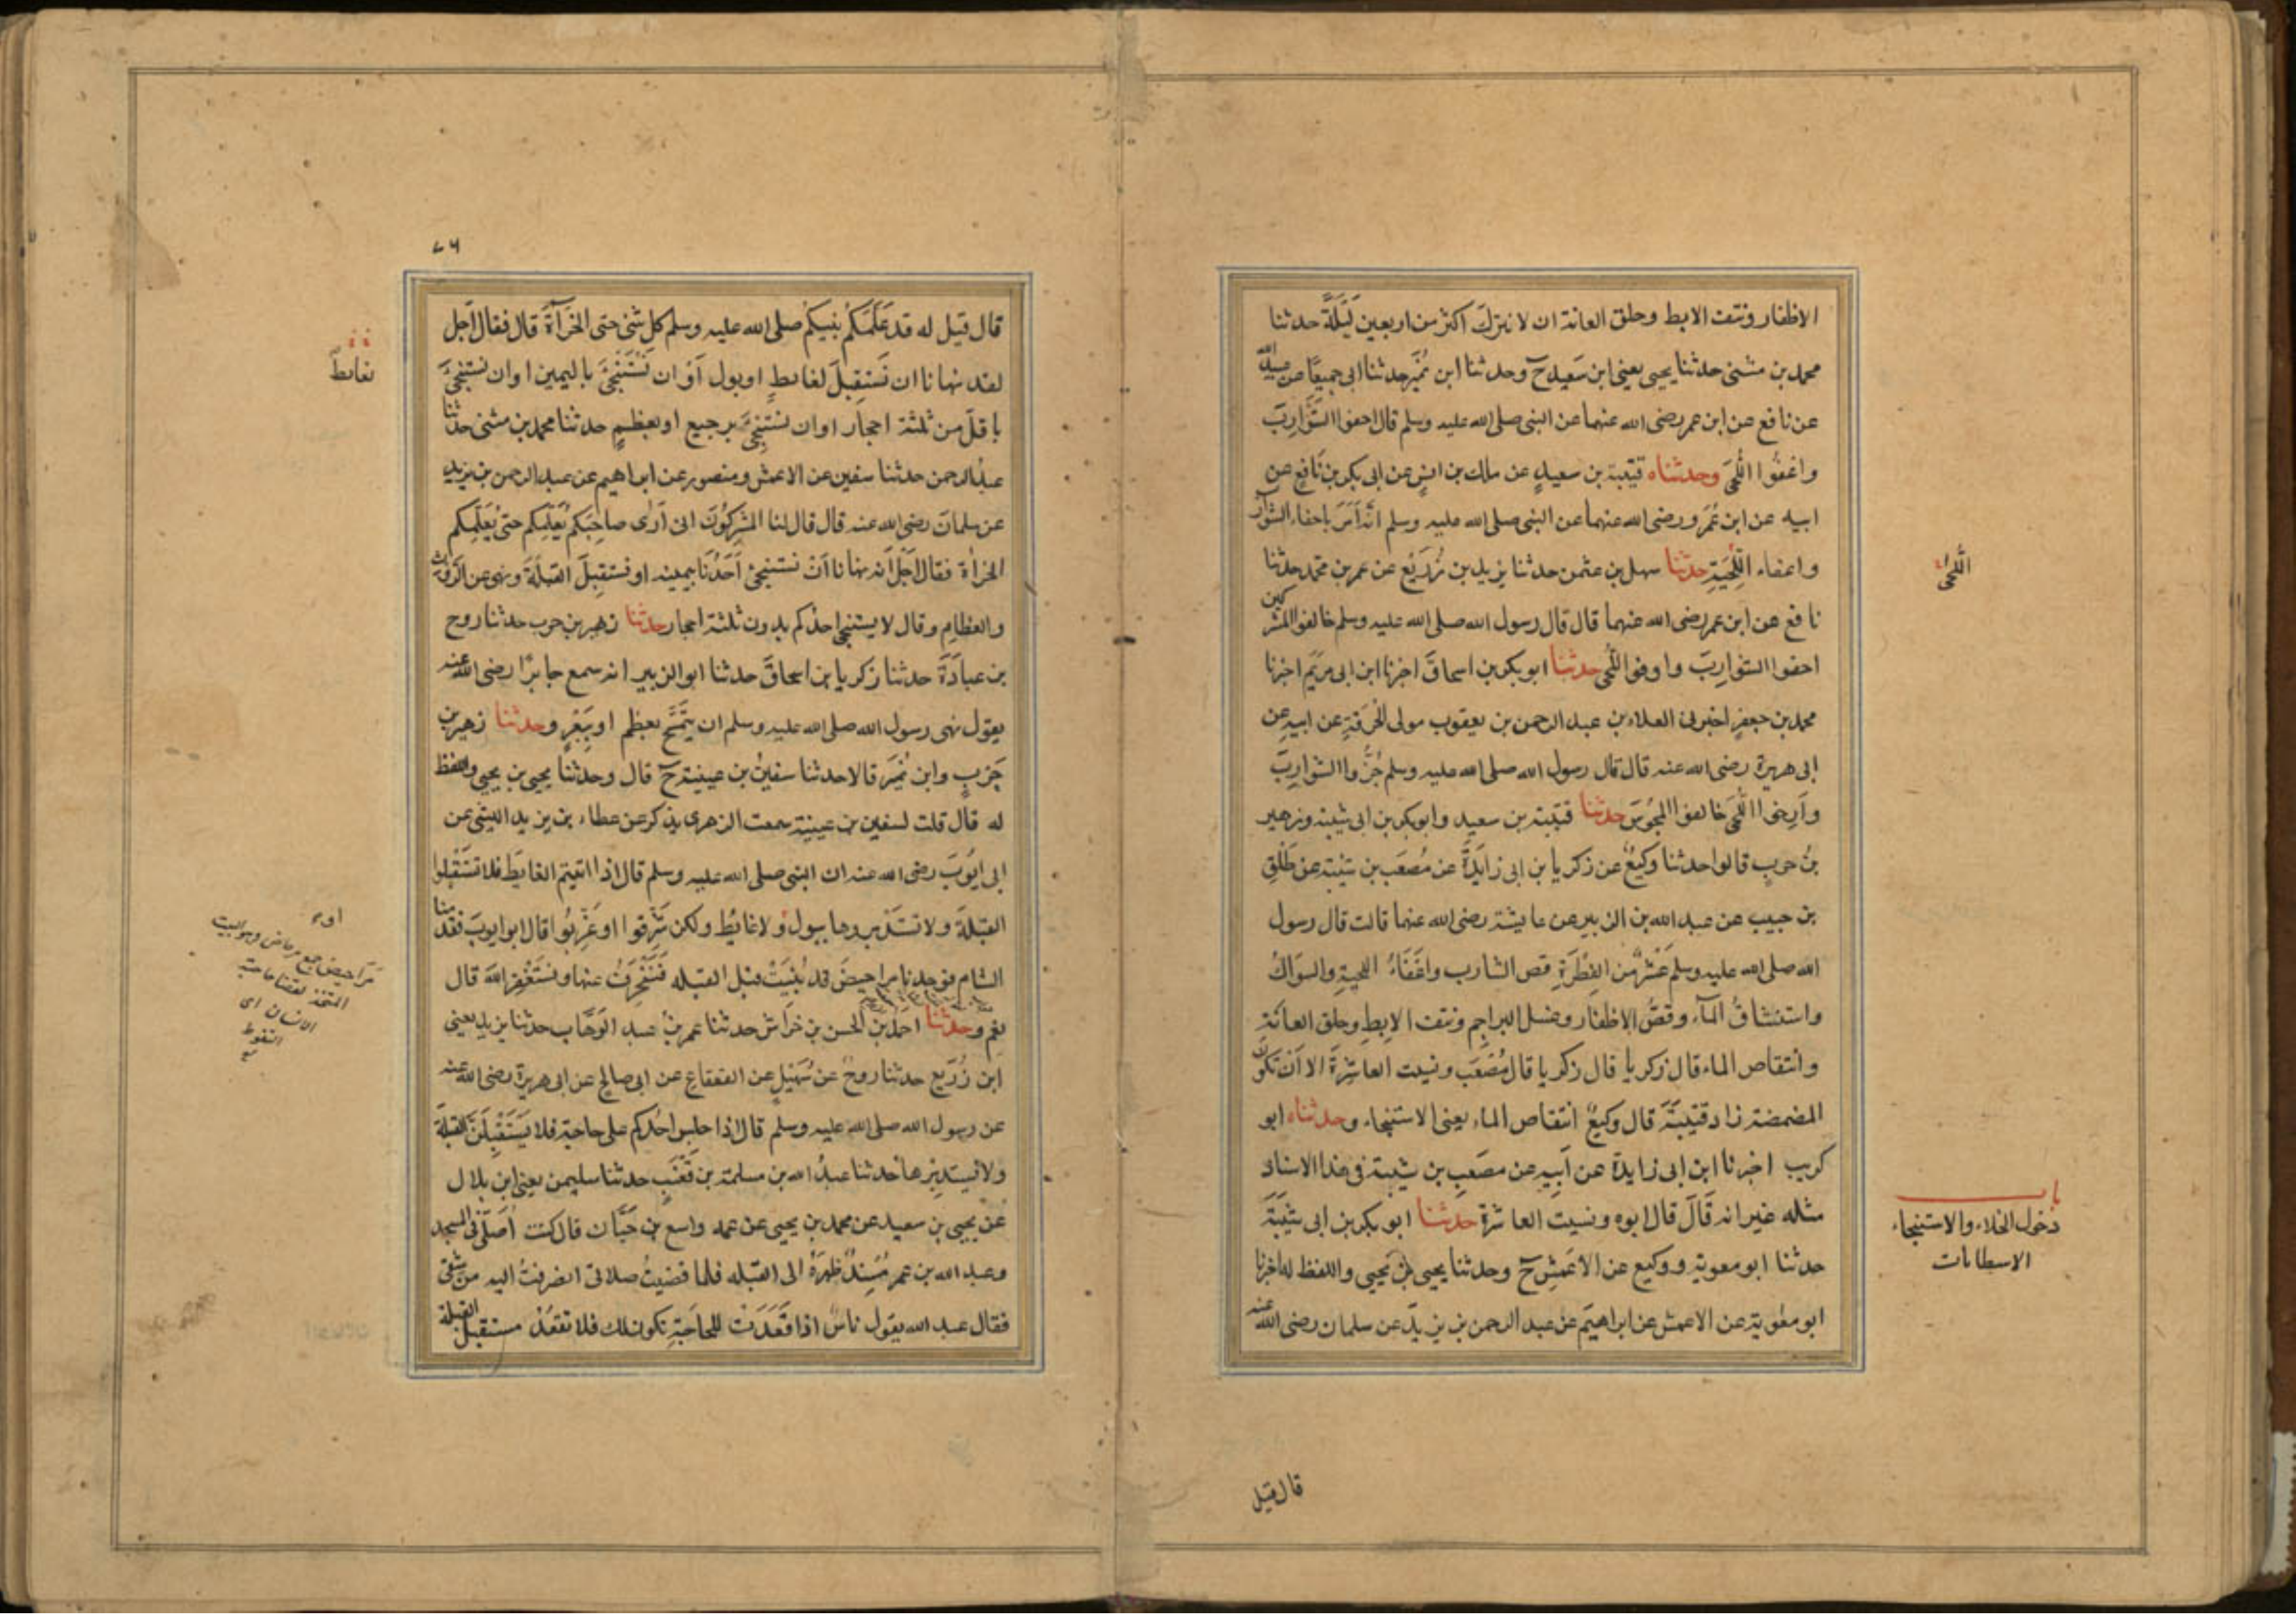 الاظفار ونتف الابط وحلق العانة ان لا نترك اكثر من اربعين لَيْلَةً حدثنا
محمد بن مثنى حدثنا يحيى يعنى ابن سَعِيد ح وحدثنا ابن نُمَير حدثنا ابى جميعًا عن عبيد الله
عن نافع عن ابن عمر رضى الله عنهما عن النبى صلى الله عليه وسلم قال احفوا الشَّوارِبَ
واعفُوا اللُّحَى وحدثناه قتيبة بن سعيدٍ عن مالك بن انسٍ عن ابى بكر بن نافِعٍ عن
ابيه عن ابن عُمَرَ ورضى الله عنهما عن النبى صلى الله عليه وسلم انّه اَمَرَ باحفاء الشوارِب
واعفاء اللِّحْيَةِ حدثنا سهل بن عثمن حدثنا يزيد بن زُرَيْعٍ عن عمر بن محمد حدثنا
نافع عن ابن عمر رضى الله عنهما قال قال رسول الله صلى الله عليه وسلم خالفوا المشركين
احفوا الشوارِبَ واوفوا اللُّحى حدثنا ابو بكر بن اسحاقَ اخبرنا ابن ابى مريَم اخبرنا
محمد بن جعفرٍ اخبرنى العلاء بن عبد الرحمن بن يعقوب مولى الحُرَقَةِ عن ابيه عن
ابى هريرة رضى الله عنه قال قال رسول الله صلى الله عليه وسلم جُزُّوا الشوارِبَ
واَرخوا اللُّحَى خالفوا المَجُوسَ حدثنا قتيبة بن سعيد وابو بكر بن ابى شيبة وزهير
بنُ حربٍ قالوا حدثنا وكيعٌ عن زكريا بن ابى زايدَةَ عن مُصعَب بن شيبة عن طَلْقِ
بن حبيب عن عبد الله بن الزبير عن عايشة رضى الله عنها قالت قال رسول
الله صلى الله عليه وسلم عَشْرٌ من الفِطْرَةِ قص الشارب واعْفَاءُ اللحيةِ والسواكُ
واستنشاقُ المآء وقصُّ الاظفارِ وغسل البراجِم ونتف الاِبِطِ وحلق العانَة
وانتقاص الماء قال زكريا قال زكريا قال مُصْعَب ونسيت العاشِرَةَ الا اَنْ تكونَ
المضمضة زاد قتيبَةُ قال وكيعٌ انتقاص الماء يعنى الاستنجاء وحدثناه ابو
كريب اخبرنا ابن ابى زايدة عن اَبِيه عن مصعَبِ بن شيبة فى هذا الاسناد
مثله غير انه قَالَ قال ابوه ونسيت العاشرة حدثنا ابو بكر بن ابى شَيْبَةَ
حدثنا ابو معوية ووكيع عن الاَعمَشِ ح وحدثنا يحيى بنُ يَحيى واللفظ له اخبرنا
ابو معٰوية عن الاعمش عن ابراهيم عن عبد الرحمن بن يزيد عن سلمان رضى الله عنه
اللُّحَى
باب
دُخول الخلاء والاستنجاء
الاستطابات
قال قيل
٧٦
قال قيل له قد عَلَّمَكُم نبيكم صلى الله عليه وسلم كل شئ حتى الخَراةَ قال فقال اجل
لقد نهانا ان نَستقبِلَ لغائطٍ او بول اَوْ ان نَسْتَنْجِىَ باليمين او ان نستنجىَ
باقلّ من ثلثة احجار او ان نَستنجىَ برجيع او بعظمٍ حدثنا محمد بن مثنى حدثنا
عبدُ الرحمن حدثنا سفين عن الاعمش ومنصور عن ابراهيم عن عبد الرحمن بن يزيد
عن سلمانَ رضى الله عنه قال قال لنا المشركُونَ انى اَرٰى صاحِبَكم يُعَلِّمكم حتى يُعَلِّمكم
الخراٰة فقال اَجَلْ اَنه نهانا اَنْ نستنجى اَحَدُنا بيمينه او نستقبِلَ القبلةَ ونهى عن الرَّوْثِ
والعظامِ وقال لا يستنجى احدكم بدون ثلثة احجار حدثنا زهير بن حرب حدثنا روح
بن عبادَةَ حدثنا زكريا بن اسحاقَ حدثنا ابو الزبير انه سمع جابرًا رضى الله عنه
يقول نهى رسول الله صلى الله عليه وسلم ان يتَمَسَّحَ بعظم او ببَعْرٍ وحدثنا زهير بن
حَرْبٍ وابن نُمَيرَ قالا حدثنا سفينُ بن عيينة ح قال وحدثنا يحيى بن يحيى واللفظ
له قال قلت لسفين بن عيينة سمعت الزهرى يذكر عن عطاء بن يزيد الليثى عن
ابى ايُّوبَ رضى الله عنه ان النبى صلى الله عليه وسلم قال اذا اتيتم الغايط فلا تستَقْبِلوا
القبلةَ ولا تستَدْبِروها ببول ولا غائط ولكن شَرِّقوا او غَرِّبُوا قال ابو ايوبَ فقدمنا
الشام فوجدنا مراحيضَ قد بُنِيَتْ قِبل القبلة فَنَنْحَرِفُ عنها ونستَغْفِر الله قال
نعم وحدثنا احمد بن الحسن بن خراش حدثنا عمر بنُ عبد الوَهَّاب حدثنا يزيد يعنى
ابن زُرَيع حدثنا روح عن سُهَيْلٍ عن القعقاع عن ابى صالح عن ابى هريرة رضى الله عنه
عن رسول الله صلى الله عليه وسلم قال اذا جلس احدكم على حاجة فلا يَستَقْبِلَنَّ القبلة
ولا يستدبِرها حدثنا عبدُ الله بن مسلمة بن قَعْنَبٍ حدثنا سليمن يعنى ابن بلال
عن يحيى بن سعيد عن محمد بن يحيى عن عمه واسع بن حَبَّان قال كنت اُصَلّى فى المسجد
وعبد الله بن عمر مُسْنِدٌ ظهرَهُ الى القبله فلما قضيتُ صلاتى انصرفتُ اليه من شقى
فقال عبد الله يقول ناسٌ اذا قَعَدتَ للحاجَةِ تكون لك فلا تقعُدْ مستقبل القبلة
بغائط
مَرَاحيض جمع مرحاض وهو البيت
المتخذ لقضاء حاجة
الانسان اى
التغوط